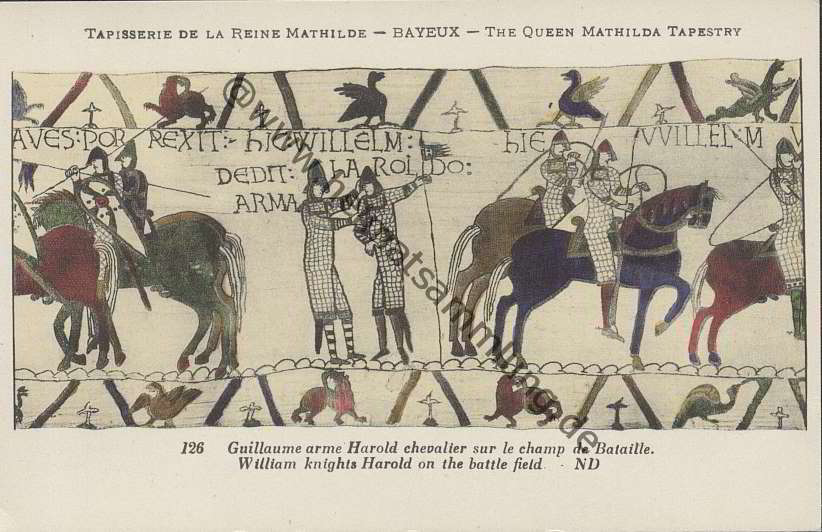 TAPISSERIE DE LA REINE MATHILDE — BAYEUX — THE QUEEN MATHILDA TAPESTRY
AVES: POR REXIT:- hIE: WILLELM: hIE VVILLELM V
DEDIT: hAROLDO:
ARMA
126 Guillaume arme Harold chevalier sur le champ de Bataille.
William knights Harold on the battle field - ND
©www.heimatsammlung.de